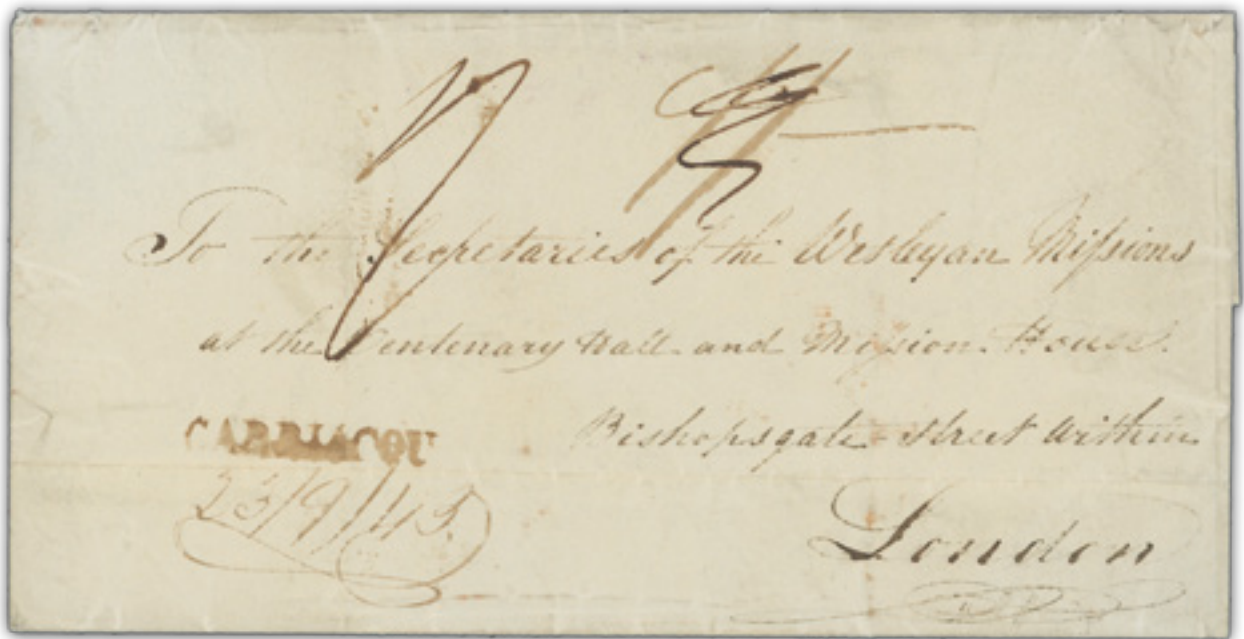 To the Secretaries of the Wesleyan Missions
at the Centenary Hall and Mission House.
Bishopsgate Street Within
CARRIACOU
23/9/45.
London